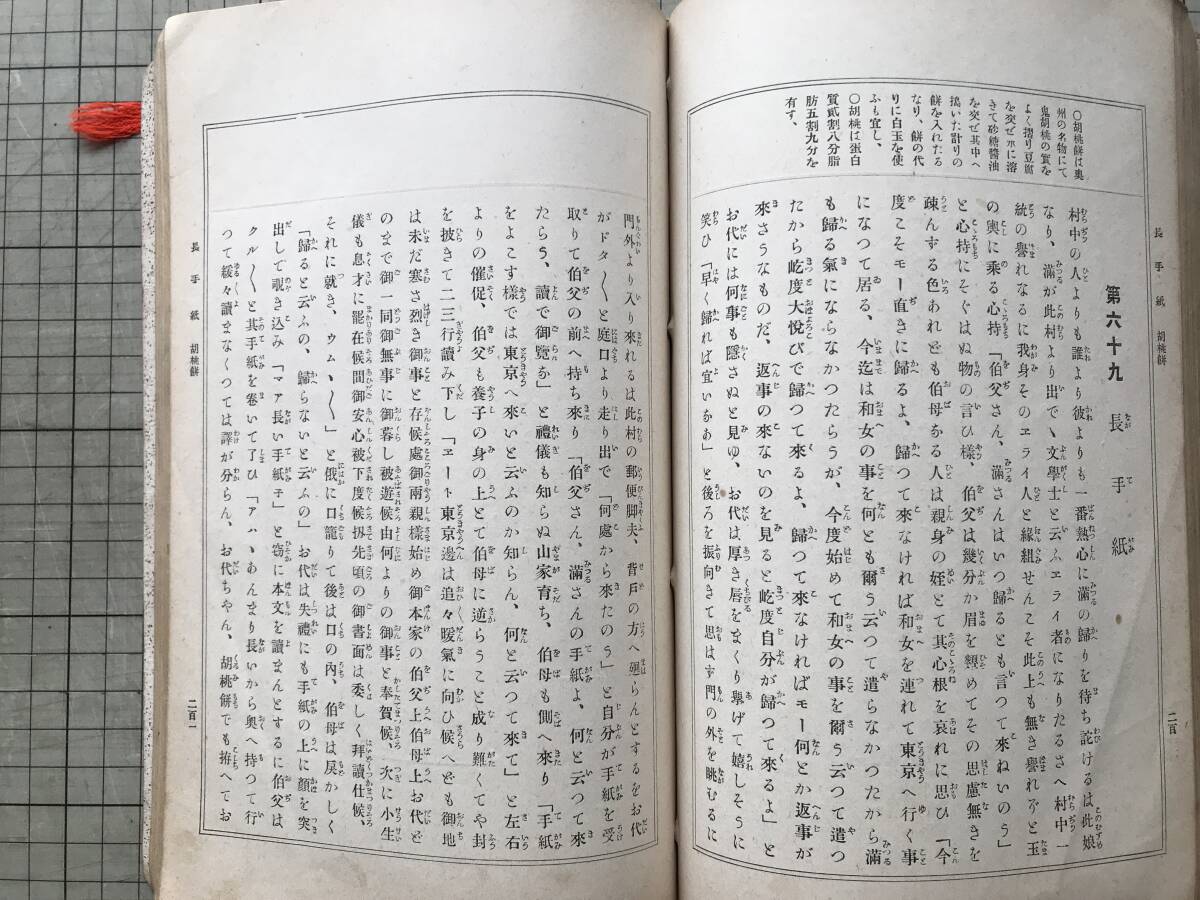 長手紙 胡桃餅
二百
〇胡桃餅は奥
州の名物にて
鬼胡桃の實を
よく摺り豆腐
を交ぜ水に溶
きて砂糖醬油
を交ぜ其中へ
搗いた計りの
餅を入れたる
なり、餅の代
りに白玉を使
ふも宜し、
〇胡桃は蛋白
質貳割八分脂
肪五割九分を
有す、
第六十九 長手紙
村中の人よりも誰より彼よりも一番熱心に滿の歸りを待ち詫けるは此娘
なり、滿が此村より出でゝ文學士と云ふエライ者になりたるさへ村中一
統の譽れなるに我身そのエライ人と緣組せんこそ此上も無き譽れぞと玉
の輿に乘る心持「伯父さん、滿さんはいつ歸るとも言つて來ねいのう」
と心持にそぐはぬ物の言ひ樣、伯父は幾分か眉を顰めてその思慮無きを
疎んずる色あれども伯母なる人は親身の姪とて其心根を哀れに思ひ「今
度こそモー直きに歸るよ、歸つて來なければ和女を連れて東京へ行く事
になつて居る、今迄は和女の事を何とも爾う云つて遣らなかつたから滿
も歸る氣にならなかつたらうが、今度始めて和女の事を爾う云つて遣つ
たから屹度大悅びで歸つて來るよ、歸つて來なければモー何とか返事が
來さうなものだ、返事の來ないのを見ると屹度自分が歸つて來るよ」と
お代には何事も隱さぬと見ゆ、お代は厚き唇をまくり擧げて嬉しそうに
笑ひ「早く歸れば宜いなあ」と後ろを振向きて思はず門の外を眺むるに
門外より入り來れるは此村の郵便脚夫、背戸の方へ廻らんとするをお代
がドタ〳〵と庭口より走り出で「何處から來たのう」と自分が手紙を受
取りて伯父の前へ持ち來り「伯父さん、滿さんの手紙よ、何と云つて來
たらう、讀で御覽な」と禮儀も知らぬ山家育ち、伯母も側へ來り「手紙
をよこす樣では東京へ來いと云ふのか知らん、何と云つて來て」と左右
よりの催促、伯父も養子の身の上とて伯母に逆らうこと成り難くてや封
を披きて二三行讀み下し「エート東京邊は追々暖氣に向ひ候へども御地
は未だ寒さ烈き御事と存候處御兩親樣始め御本家の伯父上伯母上お代ど
のまで御一同御無事に御暮し被遊候由何よりの御事と奉賀候、次に小生
儀も息才に罷在候間御安心被下度候扨先頃の御書面は委しく拜讀仕候、
それに就き、ウム〳〵」と俄に口籠りて後は口の內、伯母は戾かしく
「歸ると云ふの、歸らないと云ふの」お代は失禮にも手紙の上に顏を突
出して覗き込み「マア長い手紙子」と竊に本文を讀まんとするに伯父は
クル〳〵と其手紙を卷いて了ひ「アハヽあんまり長いから奥へ持つて行
つて緩々讀まなくつては譯が分らん、お代ちやん、胡桃餅でも拵へてお
長手紙 胡桃餅
二百一